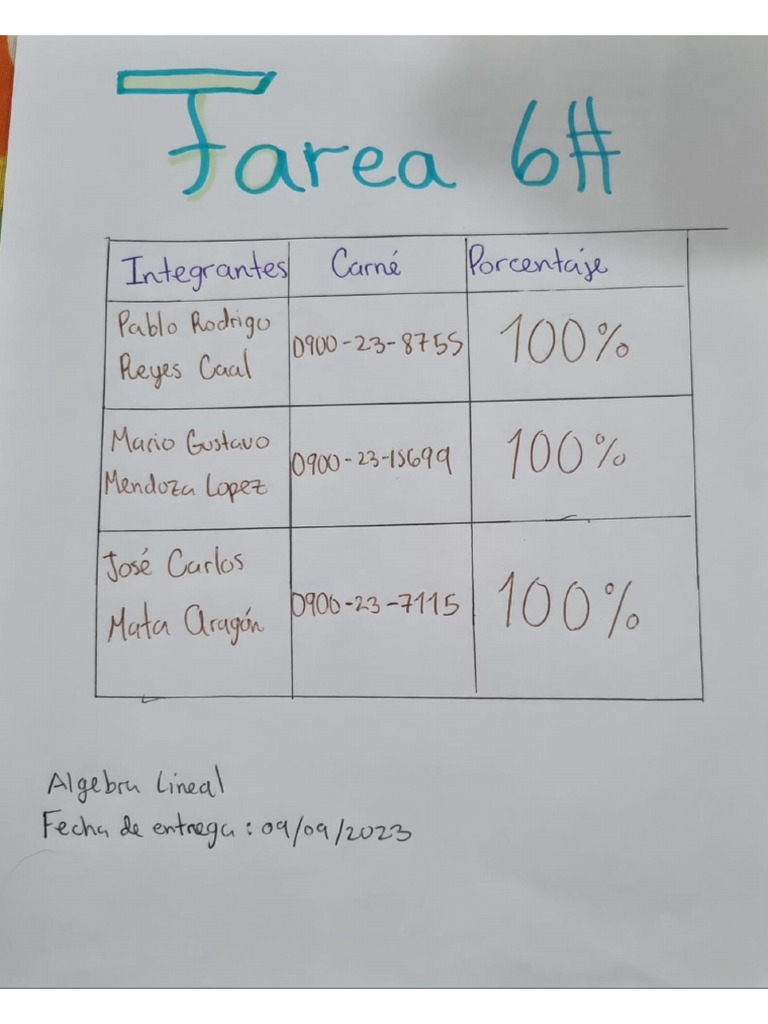 Tarea 6#
Integrantes Carné Porcentaje
Pablo Rodrigo
Reyes Caal
0900-23-8755
100%
Mario Gustavo
Mendoza Lopez
0900-23-15699
100%
José Carlos
Mata Aragón
0900-23-7115
100%
Algebra Lineal
Fecha de entrega: 09/09/2023